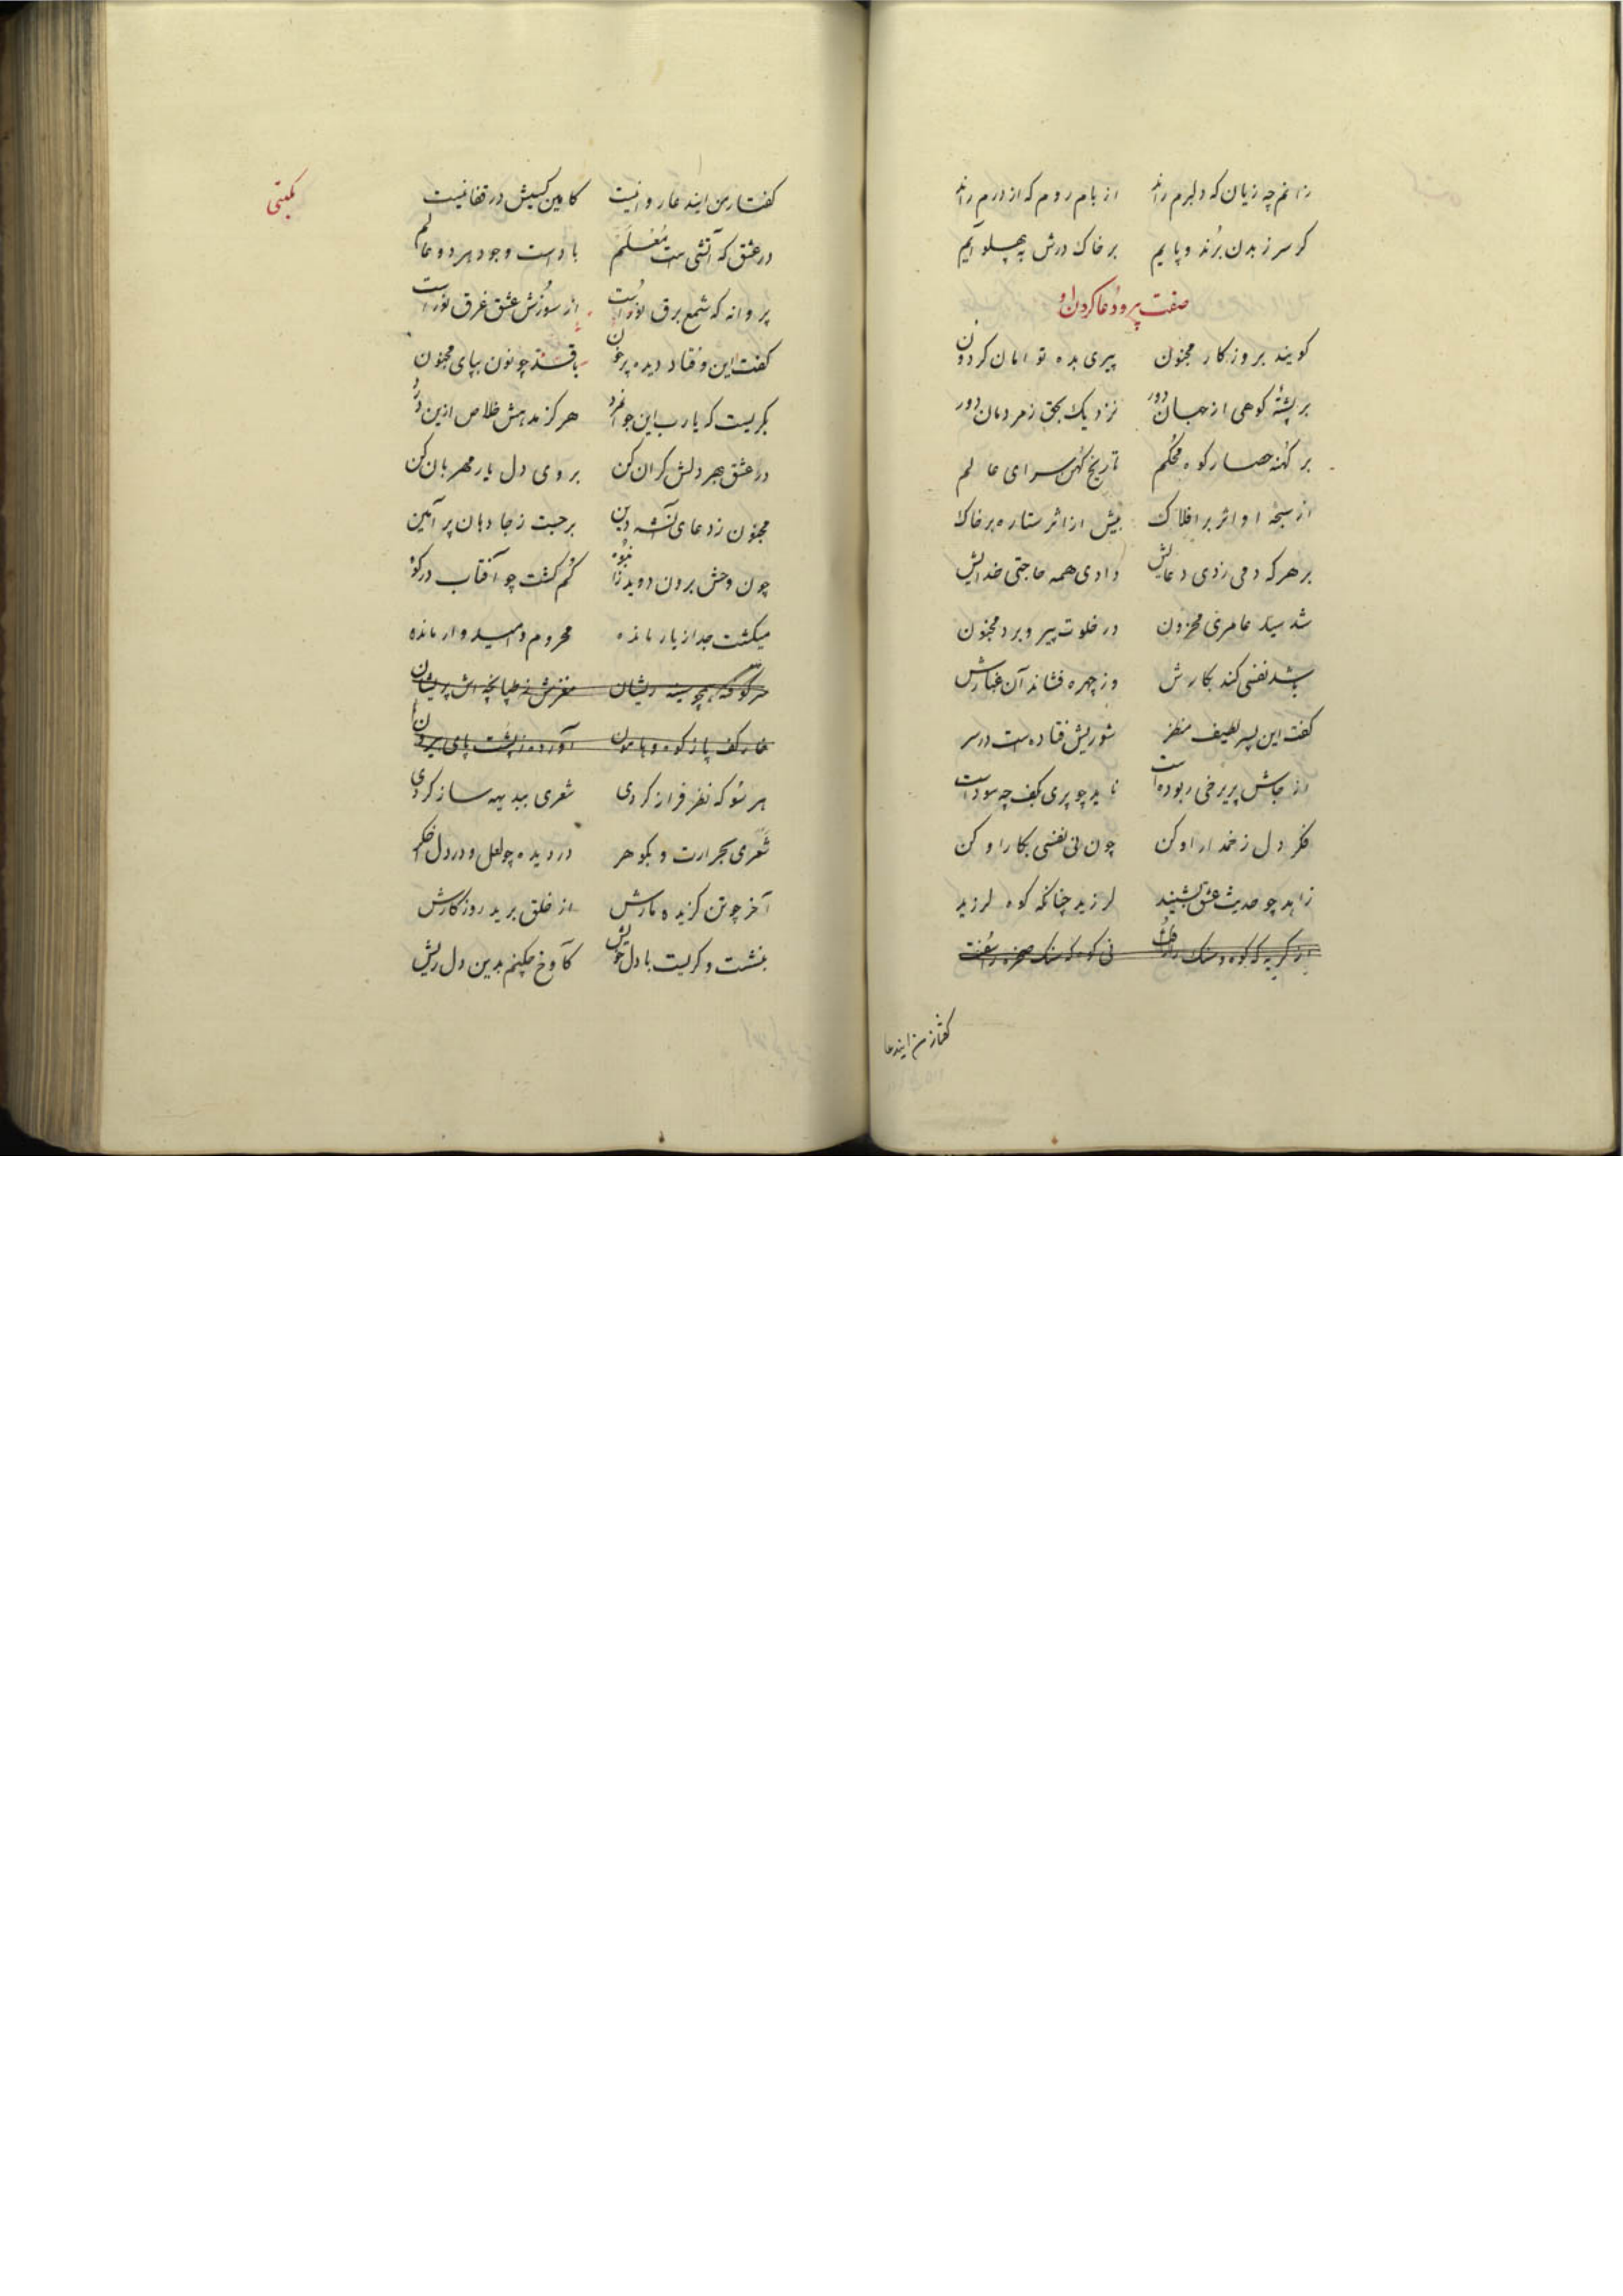 زانم چه زیان که دلبرم راند از بام روم که از درم راند
گر سر ز بدن برند و پایم بر خاک درش به پهلو آیم
صفت پیر و دعا کردن او
کویند بروزکار مجنون پیری بده توامان کردون
بر پشته کوهی از جهان دور نزدیک بحق ز مردمان دور
بر کهنه حصار کوه محکم تاریخ کهن سرای عالم
از سبحه او اثر بر افلاک بیش از اثر ستاره بر خاک
بر هرکه دمی زدی دعایش دادی همه حاجتی خدایش
شد سید عامری محزون در خلوت پیر و برد مجنون
باشد نفسی کند بکارش وز چهره فشاند آن غبارش
کفت این پسر لطیف منظر شوریش فتاده است در سر
از جاش پریرخی ربوده است ناید چو پری بکف چه سود است
فکر دل زخمدار او کن چون نی نفسی بکار او کن
زاهد چو حدیث عشق بشنید لرزید چنانکه کوه لرزید
از کریه که کوه و سنک را
کفتا ز من ایندعا
کفتا ز من ایندعا روا نیست کاومین کسیش در قفا نیست
در عشق که آتشی است مُعْلَم باد است وجود هر دو عالم
پروانه که شمع برق نور است از سوزش عشق غرق نور است
کفت این و فتاد دیده پر خون با قد چو نون بپای مجنون
بکریست که یارب این جوانمرد هرکز مدهش خلاص ازین درد
در عشق هجر دلش کران کن بر وی دل یار مهربان کن
مجنون ز دعای آنشه دین برجست ز جا دهان پر آمین
چون وحش برون دوید ز انبوه کم کشت چو آفتاب در کوه
میکشت جدا ز یار مانده محروم و امیدوار مانده
سینه ریشان مغزش ز طپانچه اش پریشان
خار کف پا ز کوه و هامون آورده ز پشت پای بیرون
هر سو که نظر فراز کردی شعری ببدیهه ساز کردی
شعری بحرارت و بکوهر در دیده چو لعل و در دل اخکر
آخر چو تن کزیده مارش از خلق برید روزکارش
بنشست و کریست با دل خویش کاوخ چکنم بدین دل ریش